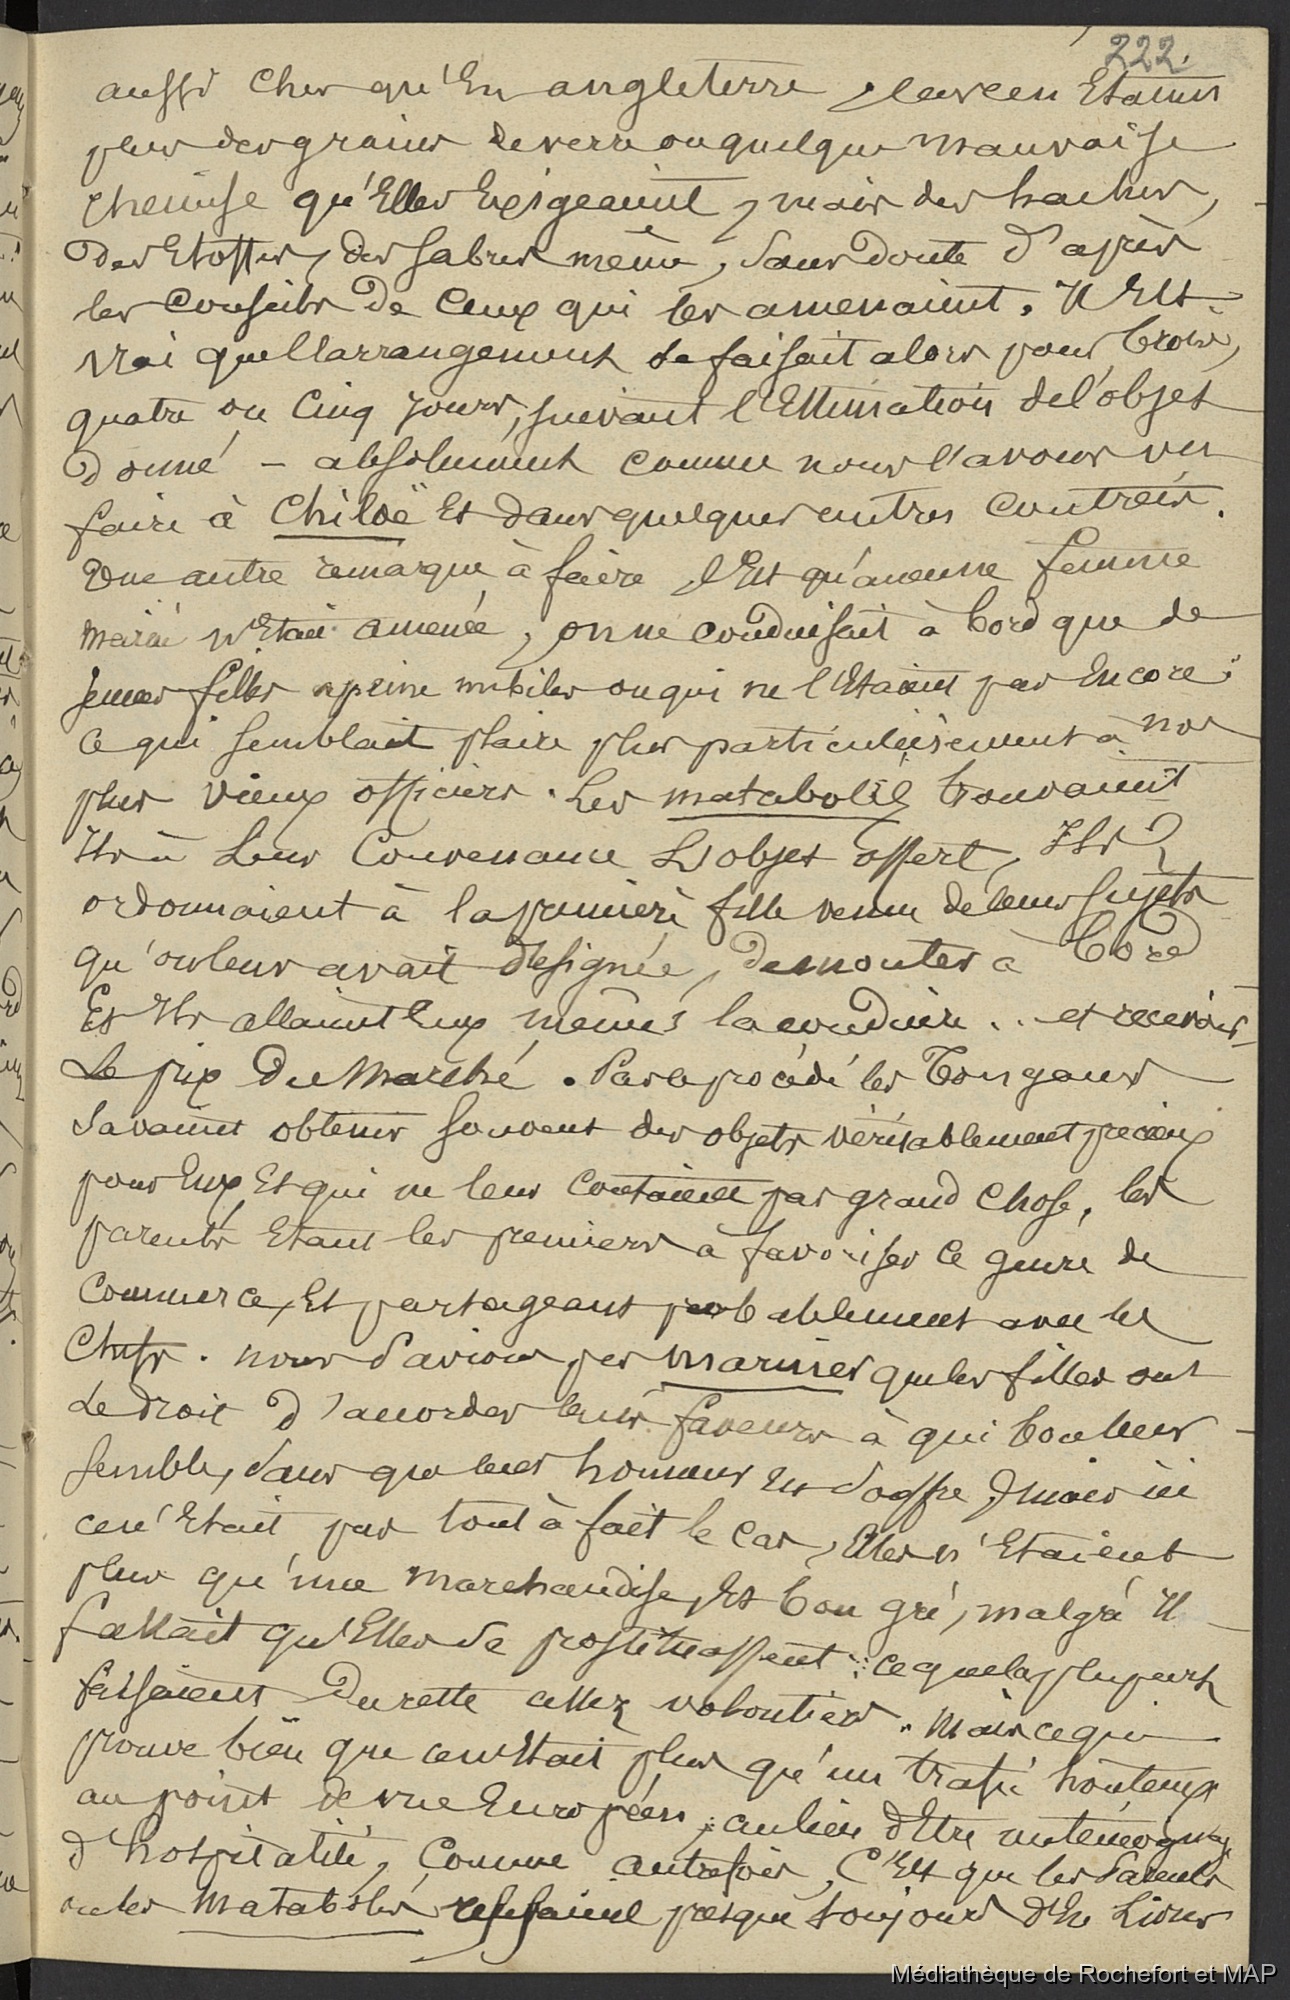 222.
aussi cher qu'En angleterre, car ce n'Etaient
plus des grains de verre ou quelque mauvaise
chemise qu'Elles Exigeaient, mais des haches,
des Etoffes, des sabres même, sans doute d'après
les conseils de Ceux qui les amenaient. Il Est
vrai que l'arrangement se faisait alors pour trois,
quatre ou Cinq jours, suivant l'Estimation de l'objet
donné – absolument comme nous l'avons vu
faire à Chiloë Et dans quelques autres contrées.
Une autre remarque à faire, c'Est qu'aucune femme
mariée n'Etait amenée, on ne conduisait à bord que de
jeunes filles à peine nubiles ou qui ne l'Etaient pas Encore:
Ce qui semblait plaire plus particulièrement à nos
plus vieux officiers. Les matabolés trouvaient
Ils à Leur Convenance L'objet offert, Ils
ordonnaient à la première fille venue de leurs sujets
qu'on leur avait désignée, de monter à bord
Et Ils allaient Eux mêmes la conduire .. et recevoir
Le prix du Marché. Par ce procédé les Tongans
savaient obtenir souvent des objets véritablement précieux
pour Eux Et qui ne leur coutaient pas grand chose, les
parents Etant les premiers à favoriser ce genre de
commerce, Et partageant probablement avec les
Chefs. nous savions par mariner que les filles ont
Le droit d'accorder leurs faveurs à qui bon leur
semble, sans que leur honneur En souffre, mais ici
ce n'Etait pas tout à fait le cas, Elles n'Etaient
plus qu'une marchandise, Et bon gré, malgré Il
fallait qu'Elles se prostituassent: ce que la plupart
faisaient Du reste assez volontiers. Mais ce qui
prouve bien que ce n'Etait plus qu'un trafic honteux
au point de vue Européen, au lieu d'Etre un témoignage
d'hospitalité, Comme autrefois, C'Est que les Parents
ou les Matabolés refusaient presque toujours d'En Livrer
Médiathèque de Rochefort et MAP